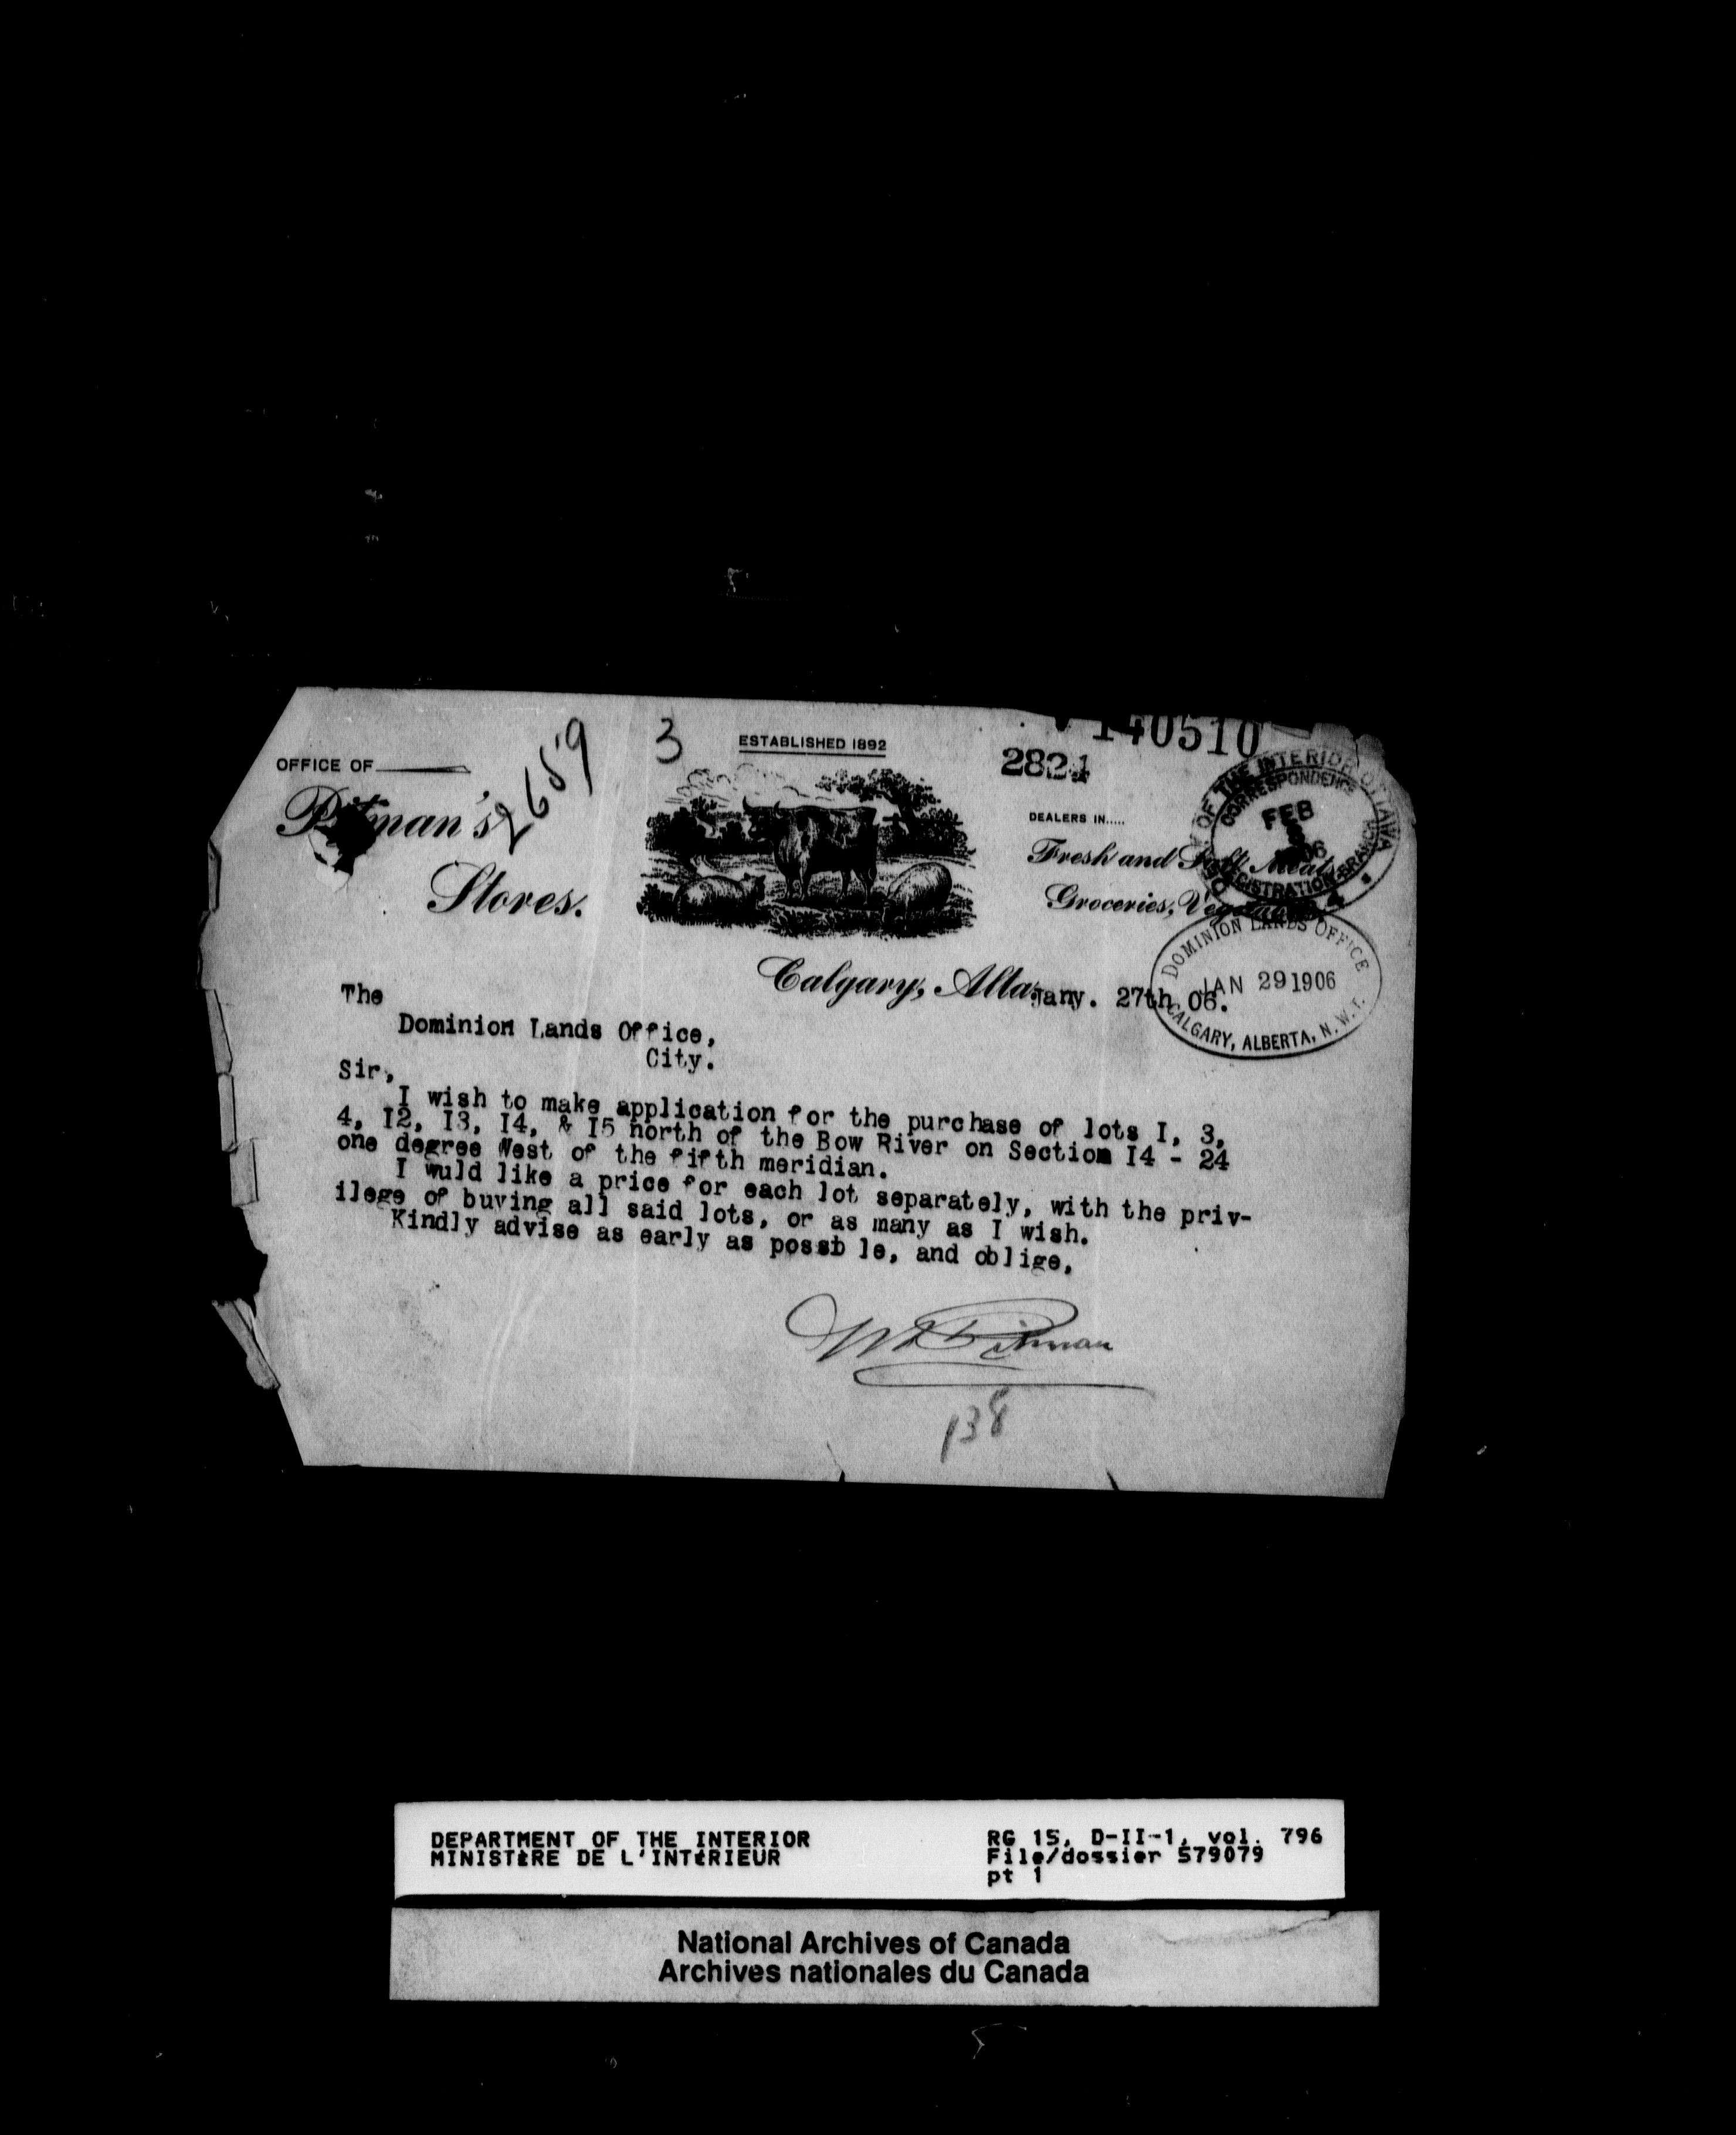 140510
2659
3
ESTABLISHED 1892
2824
OFFICE OF
Pitman's
Stores.
DEALERS IN.....
Fresh and Salt Meats
Groceries, Vegetables
OF THE INTERIOR OTTAWA
CORRESPONDENCE
FEB
3
06
REGISTRATION BRANCH
DOMINION LANDS OFFICE
JAN 29 1906
CALGARY, ALBERTA, N.W.T.
Calgary, Alta. Jany. 27th 06.
The
Dominion Lands Office,
City.
Sir,
I wish to make application for the purchase of lots I, 3,
4, I2, I3, I4, & I5 north of the Bow River on Section I4 - 24
one degree West of the fifth meridian.
I wuld like a price for each lot separately, with the priv-
ilege of buying all said lots, or as many as I wish.
Kindly advise as early as possb le, and oblige,
Pitman
138
DEPARTMENT OF THE INTERIOR
MINISTÈRE DE L'INTÉRIEUR
RG 15, D-II-1, vol. 796
File/dossier 579079
pt 1
National Archives of Canada
Archives nationales du Canada